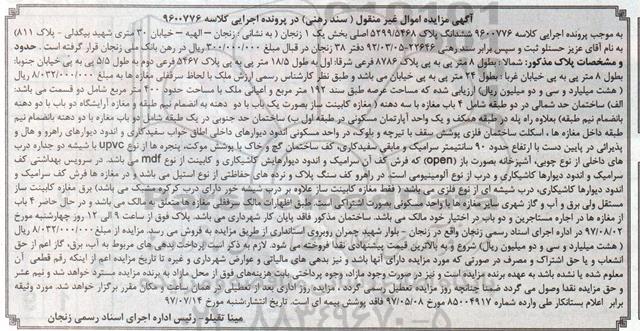 آگهی مزایده اموال غیر منقول ( سند رهنی) در پرونده اجرایی کلاسه ۹۶۰۰۷۷۶
به موجب پرونده اجرایی کلاسه ۹۶۰۰۷۷۶ ششدانگ پلاک ۵۲۹۹/۵۴۶۸ اصلی بخش یک ۱ زنجان ( به نشانی : زنجان – الهیه – خیابان ۳۰ متری شهید بیگدلی – پلاک ۸۱۱)
به نام آقای عزیز حستلو ثبت و سپس برابر سند رهنی ۲۲۶۴۶–۹۲/۰۳/۰۵ دفتر ۳۸ زنجان در قبال مبلغ ۳۰۰/۰۰۰/۰۰۰ ریال در رهن بانک ملی زنجان قرار گرفته است . حدود
و مشخصات پلاک مذکور: شمالا: بطول ۸ متر پی به پی پلاک ۸۷۸۶ فرعی شرقا: اول به طول ۱۸/۵ متر پی به پلاک ۵۴۶۷ فرعی دوم به طول ۵/۵ پی به خیابان جنوبا:
بطول ۸ متر پی به پی خیابان غربا: بطول ۲۴ متر پی به پی خیابان می باشد و طبق نظر کارشناس رسمی ارزش ملک با لحاظ سرقفلی مغازه ها به مبلغ ۸/۰۳۲/۰۰۰/۰۰۰ ریال
( هشت میلیارد و سی و دو میلیون ریال) ارزیابی شده که مساحت عرصه طبق سند ۱۹۲ متر مربع و اعیانی ملک با مساحت حدود ۴۰۰ متر مربع شامل دو قسمت می باشد:
الف) ساختمان حد شمالی در دو طبقه شامل ۴ باب مغازه با سه دهنه) مغازه کابینت ساز بصورت یک باب با دو دهنه به انضمام نیم طبقه و مغازه آرایشگاه دو باب با دو دهنه
انضمام نیم طبقه) بعلاوه راه پله در طبقه همکف و یک واحد آپارتمان مسکونی در طبقه اول ب) ساختمان حد جنوبی در یک طبقه شامل دو باب مغازه با دو دهنه بانضمام نیم
طبقه داخل مغازه ها ، اسکلت ساختمان فلزی پوشش سقف با تیرچه و بلوک، در واحد مسکونی اندود دیوارهای داخلی اطاق خواب سفیدکاری و اندود دیوارهای راهرو و هال و
پذیرائی در پایین دست با ارتفاع حدود ۹۰ سانتیمتر سرامیک و مابقی سفیدکاری، کف ساختمان گچ و خاک با پوشش موکت، پنجره ها از نوع upvc با شیشه دو جداره درب
های داخلی از نوع چوبی آشپزخانه بصورت باز (open) که فرش کف آن سرامیک و اندود دیوارهایش کاشیکاری و کابینت از نوع mdf می باشد. در سرویس بهداشتی کف
سرامیک و اندود دیوارها کاشیکاری و درب از نوع آلومینیومی است در راهرو کف سنگ پلاک و نرده های حفاظتی از نوع استیل می باشد. در مغازه ها فرش کف سرامیک و
اندود دیوارها کاشیکاری، درب شیشه ای از نوع فلزی می باشد( فقط مغازه کابینت ساز علاوه بر درب شیشه خور دارای درب کرکره مشبک می باشد) برق مغازه کابینت ساز
مستقل ولی برق و آب و گاز شهری سایر مغازه ها با واحد مسکونی بصورت اشتراکی می باشد . طبق اظهارات مالک سرقفلی مغازه های متعلق به مالک می باشد و در حال حاضر ۴ باب
از مغازه ها در اجاره مستاجرین و دو باب در اختیار خود مالک می باشد. ساختمان مذکور فاقد پایان کار شهرداری می باشد. پلاک فوق از ساعت ۹ الی ۱۲ روز چهارشنبه مورخ
۹۷/۰۸/۰۲ در اداره اجرای اسناد رسمی زنجان واقع در زنجان – بلوار شهید چمران روبروی استانداری از طریق مزایده به فروش می رسد. مزایده از مبلغ ۸/۰۳۲/۰۰۰/۰۰۰ ریال
( هشت میلیارد و سی و دو میلیون ریال) شروع و به بالاترین قیمت پیشنهادی نقدا فروخته می شود. لازم به ذکر است پرداخت بدهی های مربوط به آب، برق، گاز اعم از حق
انشعاب و یا حق اشتراک و مصرف در صورتی که مورد مزایده دارای آنها باشد و نیز بدهی های مالیاتی و عوارض شهرداری و غیره تا تاریخ مزایده اعم از اینکه رقم قطعی آن
معلوم شده یا نشده باشد به عهده برنده مزایده است و نیز در صورت وجود مازاد، وجوه پرداختی بابت هزینه‌های فوق از محل مازاد به برنده مزایده مسترد خواهد شد و نیم عشر
و حق مزایده نقدا وصول می گردد ضمنا چنانچه روز مزایده تعطیل رسمی گردد ، مزایده روز اداری بعد از تعطیلی در همان ساعت و مکان مقرر برگزار خواهد شد. مورد وثیقه
برابر اعلام بستانکار طی وارده شماره ۸۵۰۰۴۹۱۷ مورخ ۹۷/۰۵/۰۸ فاقد پوشش بیمه ای است. تاریخ انتشار:شنبه مورخ ۹۷/۰۷/۱۴
مینا تقیلو – رئیس اداره اجرای اسناد رسمی زنجان